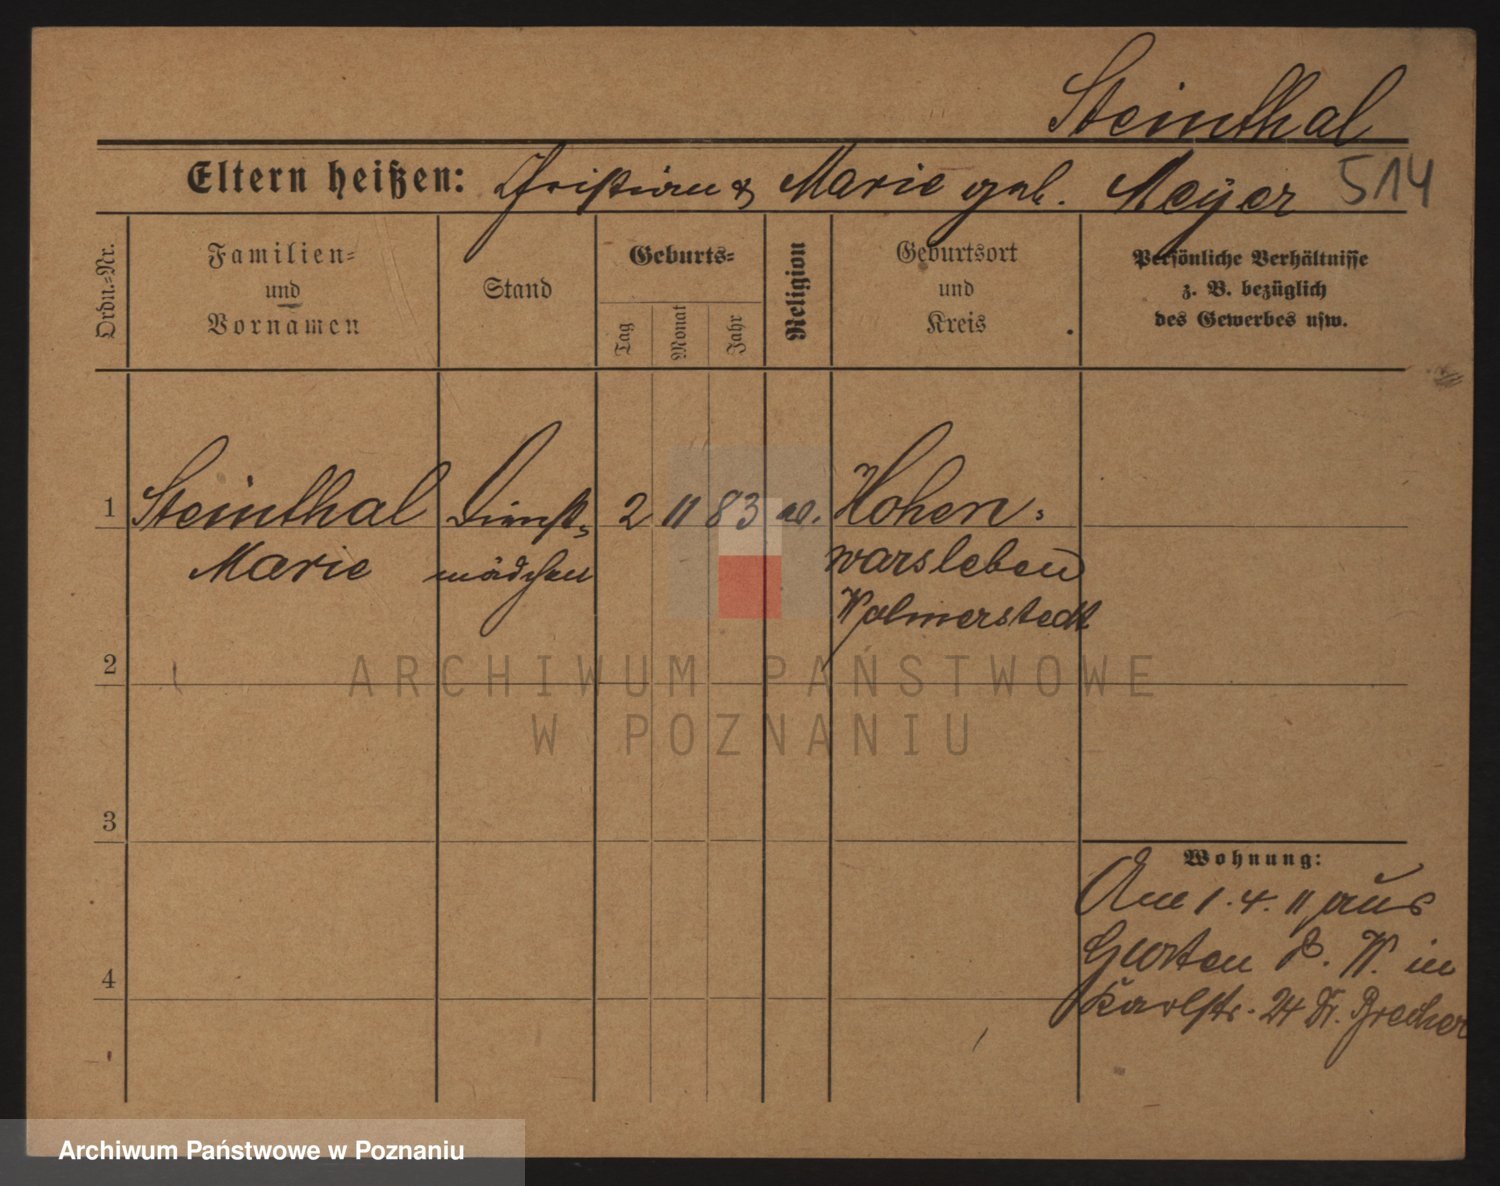 Steinthal
Eltern heißen: Christian & Marie geb. Meyer 514
Ordn.-Nr.
Familien-
und
Vornamen
Stand
Geburts-
Tag
Monat
Jahr
Religion
Geburtsort
und
Kreis
Persönliche Verhältnisse
z. B. bezüglich
des Gewerbes usw.
1 Steinthal Dienst- 2 11 83 Hohen-
Marie mädchen warsleben
Wolmirstedt
2
ARCHIWUM PAŃSTWOWE
W POZNANIU
3
Wohnung:
Am 1. 4. 11 aus
Gurten P. W. in
4
Karlstr. 24 Fr. Brecher
Archiwum Państwowe w Poznaniu